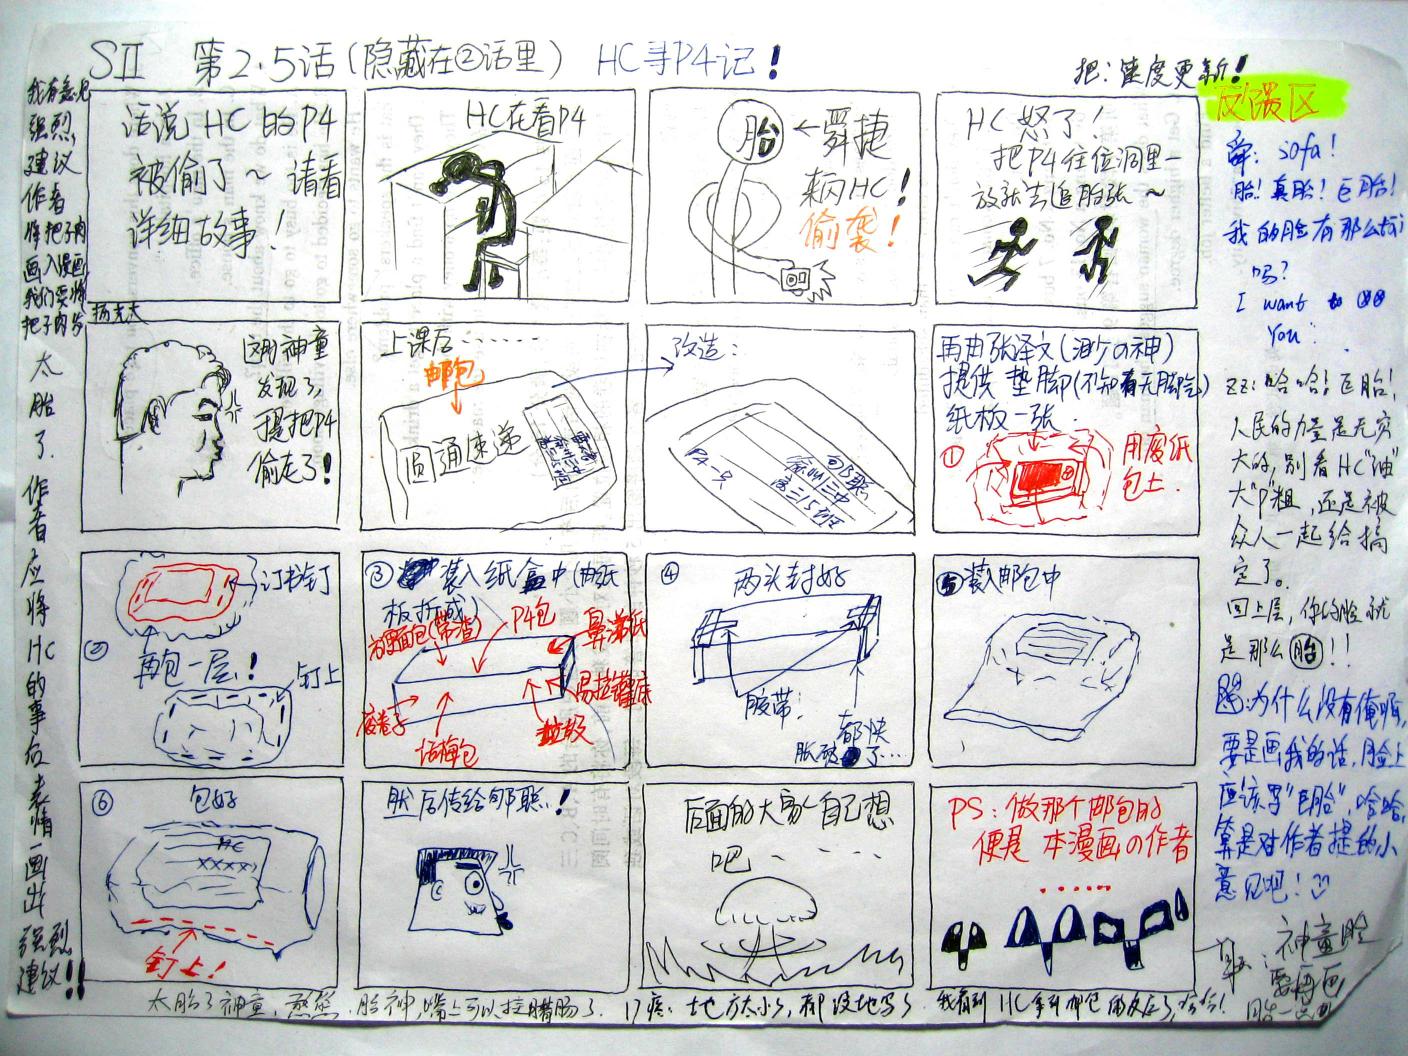 SII 第2.5话(隐藏在②话里) HC寻P4记!
把:速度更新!
反馈区
话说HC的P4
被偷了~请看
详细故事!
HC在看P4
胎
←舜捷
来闪HC!
偷袭!
HC怒了!
把P4往位洞里一
放就去追胎张~
这时神童
发现了,
于是把P4
偷走了!
上课后……
邮包
圆通速递
改造:
P4一只
高三15班
再由张泽文(渺の神)
提供垫脚(不知有无脚气)
纸板一张.
①
用废纸
包上.
②
订书钉
再包一层!
钉上
③装入纸盒中(由纸
板拆成)
方便面包(带渣)
P4包
鼻涕纸
易拉罐底
废卷子
话梅包
垃圾
④
两头封好
胶带.
都快
胀破了…
⑤装入邮包中
⑥
包好
HC
XXXX
钉上!
然后传给郇聪!
后面的大家自己想
吧……
PS:做那个邮包的
便是本漫画の作者
……
我有意见
强烈
建议
作者
画入漫画
太胎了.作者应将HC的事后表情一画出
强烈
建议!!
舜:sofa!
胎!真胎!巨胎!
我的脸有那么胎
吗?
I want to
You.
ZZ:哈哈!巨胎!
人民的力量是无穷
大的,别看HC"油"
大"P"粗,还是被
众人一起给搞
定了。
回上层,你的脸就
是那么胎!!
为什么没有俺啊,
要是画我的话,脸上
应该写"巨胎",哈哈,
算是对作者提的小
意见吧!
神童脸
要再画
胎一点
太胎了神童,
胎神,嘴上可以挂腊肠了.
地方太小了,都没地写了